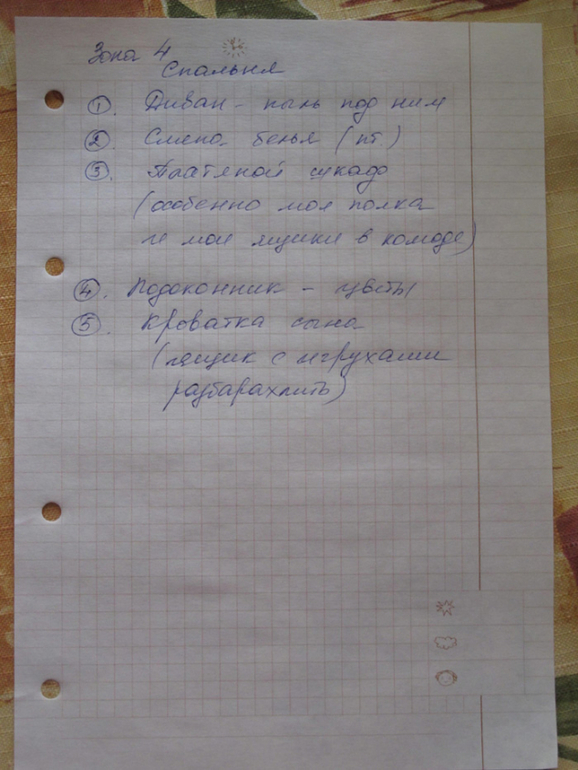 Зона 4
Спальня
1. Диван - пыль под ним
2. Смена белья (пт.)
3. Платяной шкаф
(особенно моя полка
и мои ящики в комоде)
4. Подоконник - цветы
5. Кроватка сына
(ящик с игрухами
разбарахлить)